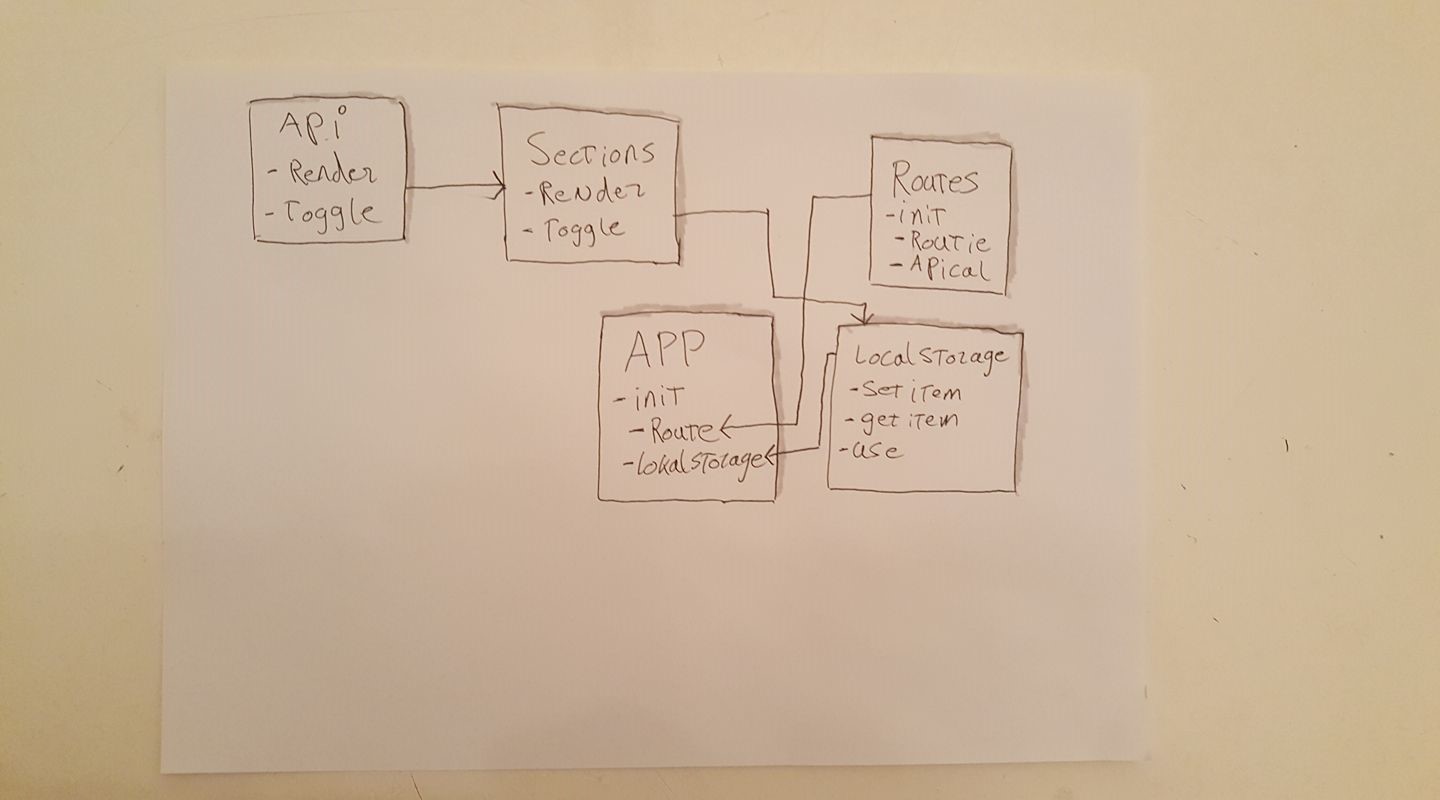 Api
- Render
- Toggle
Sections
- Render
- Toggle
Routes
- init
- Routie
- APical
APP
- init
- Route
- lokalstorage
Localstorage
- Set item
- get item
- use